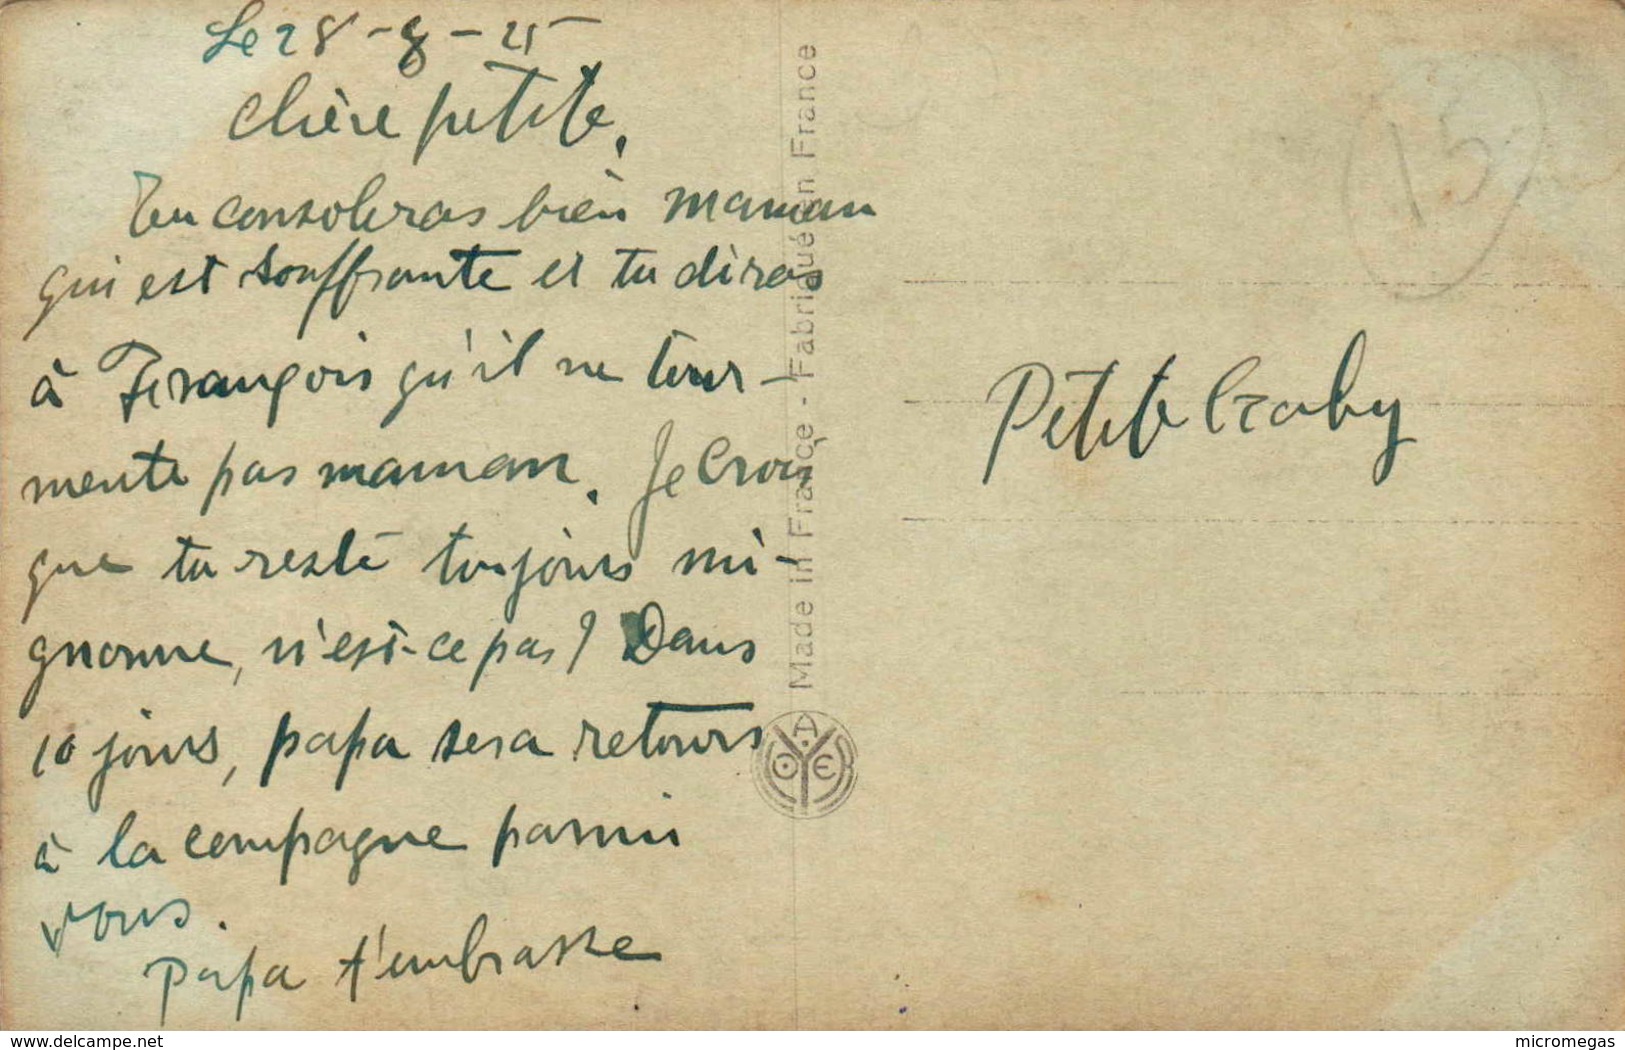 Le 28-8-25
Chère petite,
Tu consoleras bien maman
qui est souffrante et tu diras
à François qu'il ne tour-
mente pas maman. Je crois
que tu reste toujours mi-
gnonne, n'est-ce pas ? Dans
10 jours, papa sera retours
à la campagne parmi
vous.
Papa t'embrasse
Made in France - Fabriqué en France
15
Petite Gaby
delcampe.net
micromegas